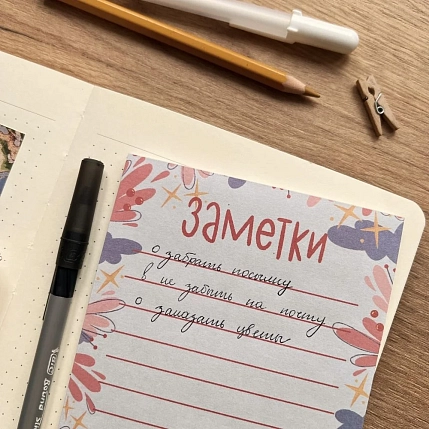 заметки
о забрать посылку
в не забыть на почту
о заказать цветы